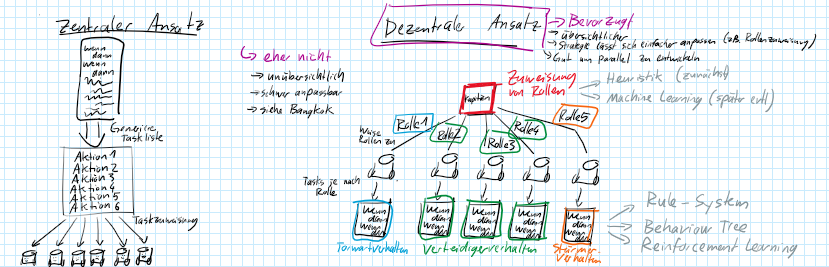 Zentraler Ansatz
wenn
dann
wenn
dann
Generiere
Taskliste
Aktion 1
Aktion 2
Aktion 3
Aktion 4
Aktion 5
Aktion 6
Taskzuweisung
eher nicht
→ unübersichtlich
→ schwer anpassbar
→ siehe Bangkok
Dezentraler Ansatz
Bevorzugt
→ übersichtlicher
→ Strategie lässt sich einfacher anpassen (z.B. Rollenzuweisung)
→ Gut um parallel zu entwickeln
Kapitän
Zuweisung
von Rollen
Heuristik (zunächst)
Machine Learning (später evtl)
Weise
Rollen zu
Rolle 1
Rolle 2
Rolle 3
Rolle 4
Rolle 5
Tasks je nach
Rolle
wenn
dann
wenn
dann
wenn
dann
wenn
dann
wenn
dann
wenn
dann
wenn
dann
wenn
dann
wenn
dann
wenn
dann
Torwartverhalten
Verteidigerverhalten
Stürmer-
verhalten
Rule-System
Behaviour Tree
Reinforcement Learning